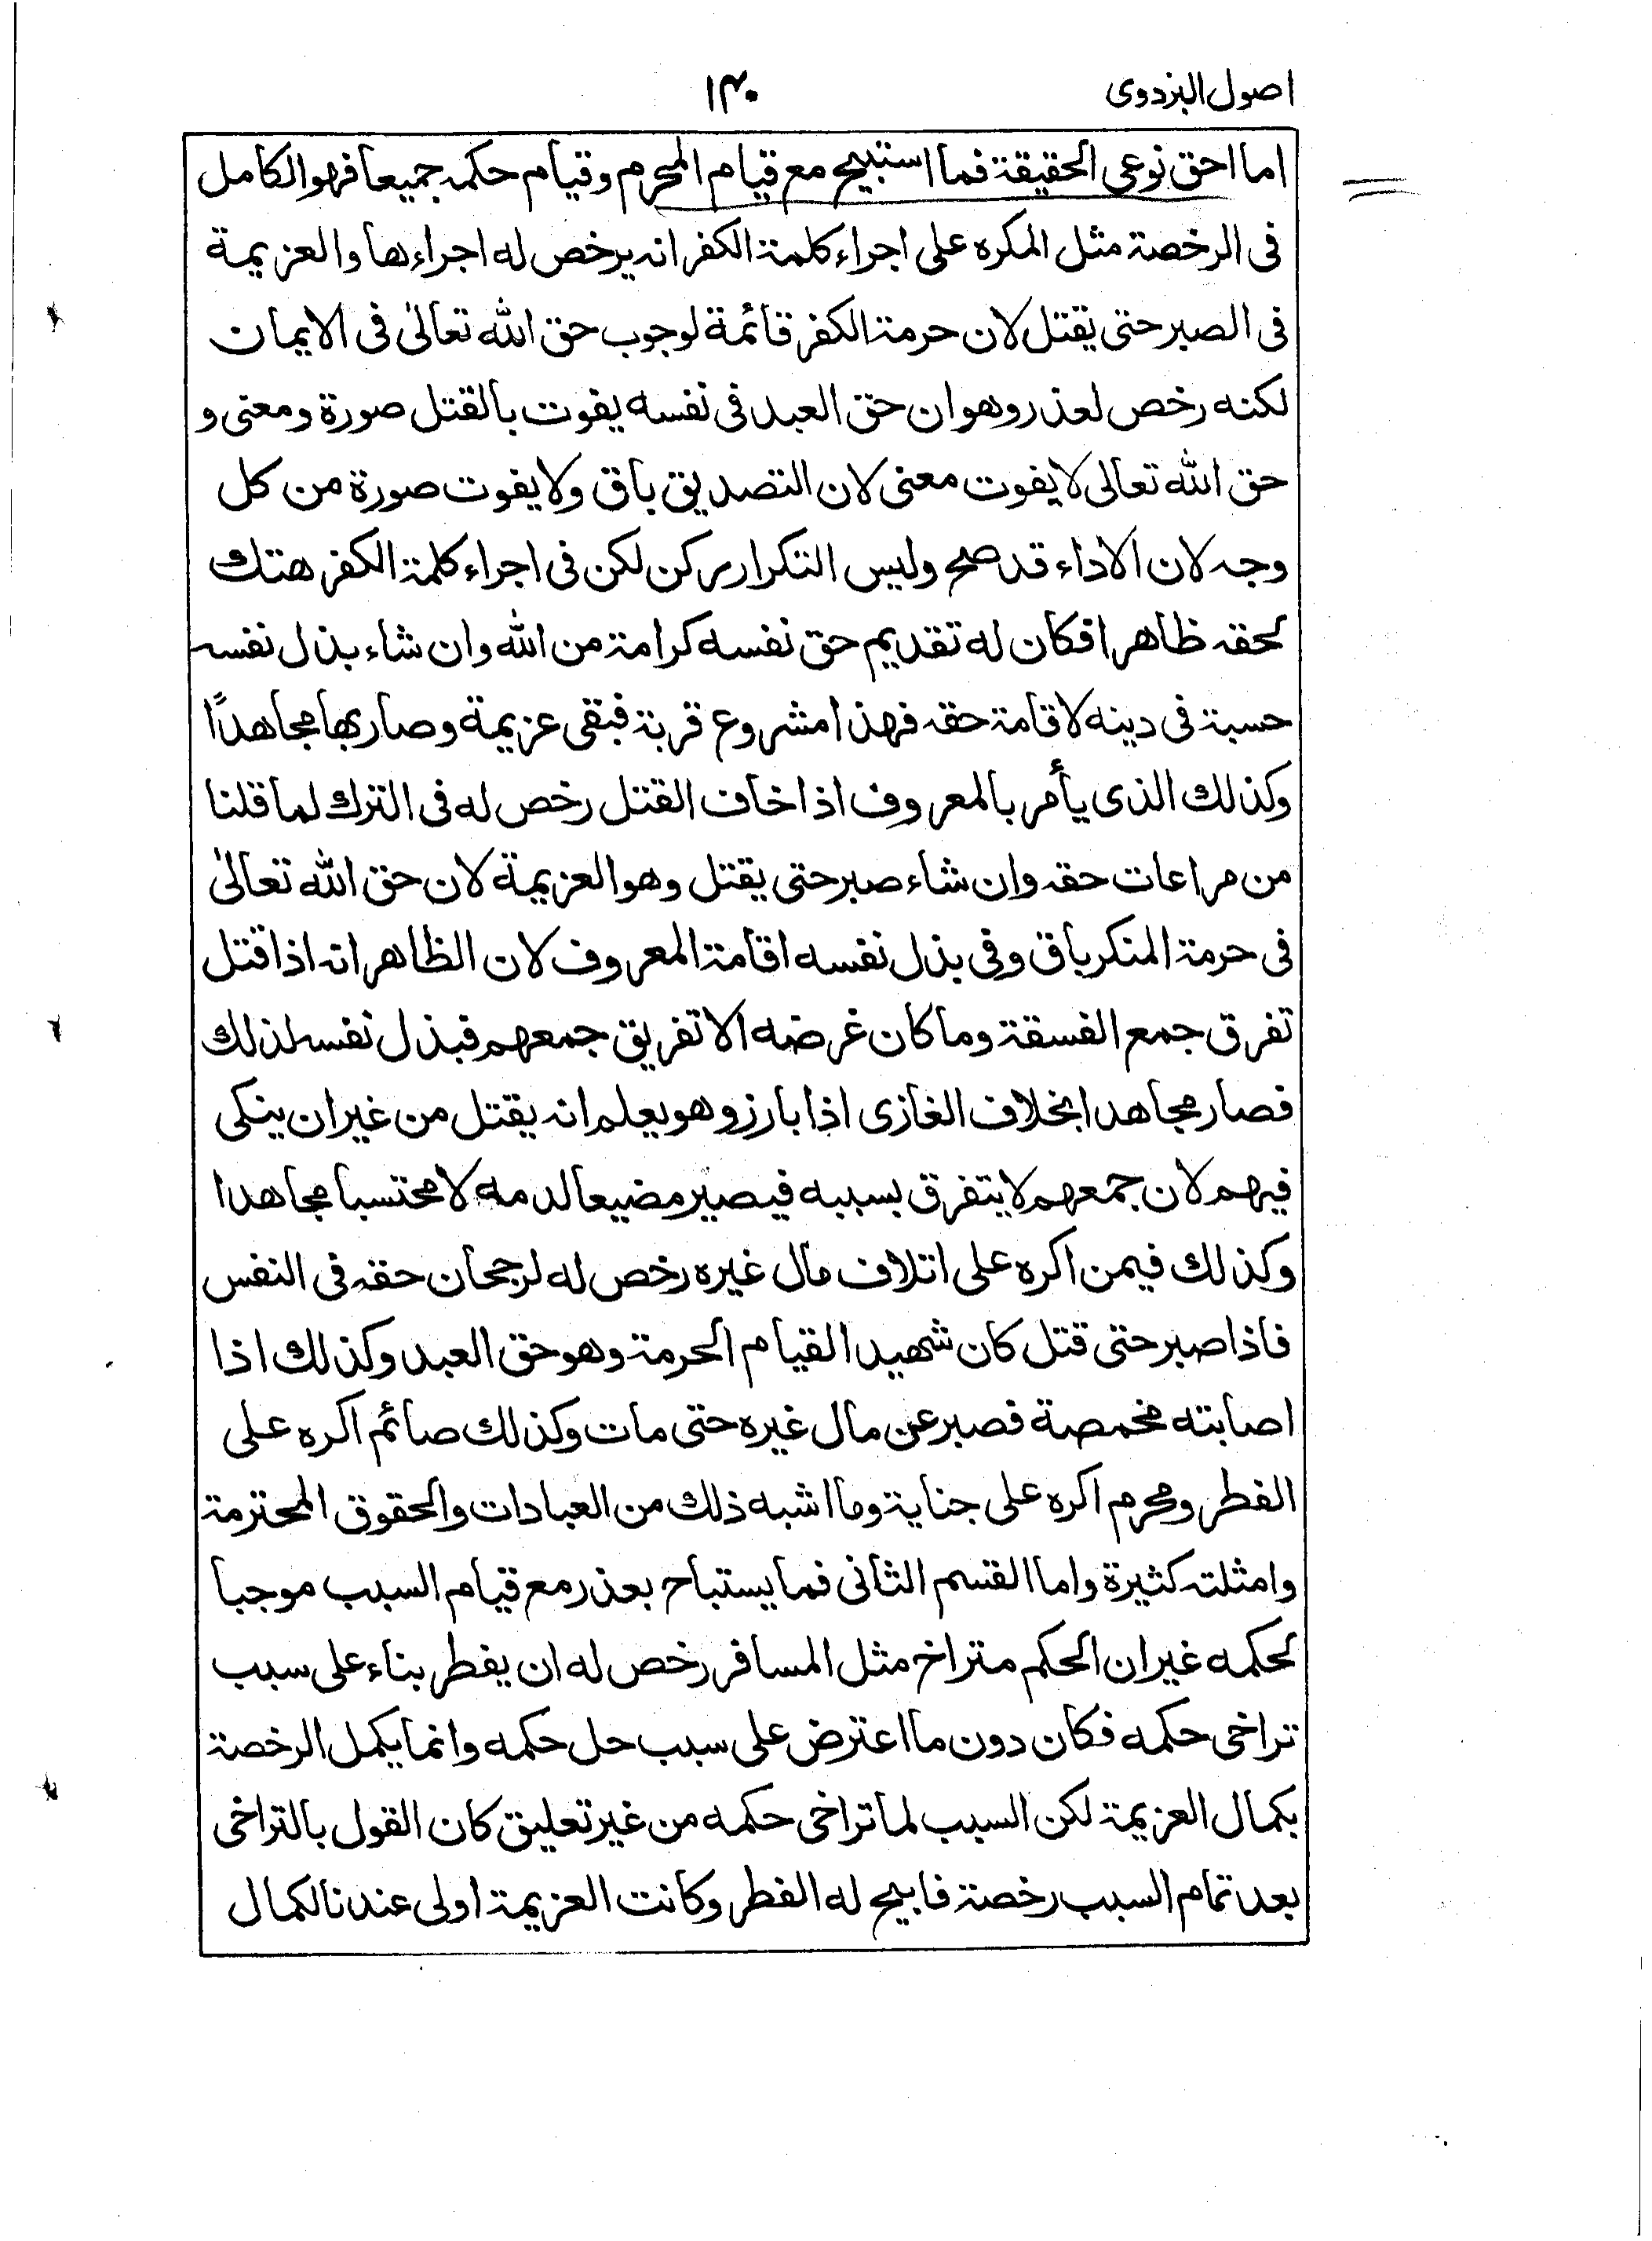 اصول البزدوى
١٤٠
اما احق نوعى الحقيقة فما استبيح مع قيام المحرم وقيام حكمه جميعا فهو الكامل
فى الرخصة مثل المكره على اجراء كلمة الكفر انه يرخص له اجراءها والعزيمة
فى الصبر حتى يقتل لان حرمة الكفر قائمة لوجوب حق الله تعالىٰ فى الايمان
لكنه رخص لعذر وهو ان حق العبد فى نفسه يفوت بالقتل صورة ومعنى و
حق الله تعالى لا يفوت معنى لان التصديق باق ولا يفوت صورة من كل
وجه لان الاداء قد صح وليس التكرار بركن لكن فى اجراء كلمة الكفر هتك
لحقه ظاهرا فكان له تقديم حق نفسه كرامة من الله وان شاء بذل نفسه
حسبة فى دينه لاقامة حقه فهذا مشروع قربة فبقى عزيمة وصار بها مجاهدًا
وكذلك الذى يأمر بالمعروف اذا خاف القتل رخص له فى الترك لما قلنا
من مراعات حقه وان شاء صبر حتى يقتل وهو العزيمة لان حق الله تعالىٰ
فى حرمة المنكر باق وفى بذل نفسه اقامة المعروف لان الظاهر انه اذا قتل
تفرق جمع الفسقة وما كان غرضه الا تفريق جمعهم فبذل نفسه لذلك
فصار مجاهدا بخلاف الغازى اذا بارز وهو يعلم انه يقتل من غير ان ينكى
فيهم لان جمعهم لا يتفرق بسببه فيصير مضيعا لدمه لا محتسبا مجاهدا
وكذلك فيمن اكره على اتلاف مال غيره رخص له لرجحان حقه فى النفس
فاذا صبر حتى قتل كان شهيدا لقيام الحرمة وهو حق العبد وكذلك اذا
اصابته مخمصة فصبر عن مال غيره حتى مات وكذلك صائم اكره على
الفطر ومحرم اكره على جناية وما اشبه ذلك من العبادات والحقوق المحترمة
وامثلته كثيرة واما القسم الثانى فما يستباح بعذر مع قيام السبب موجبا
لحكمه غير ان الحكم متراخ مثل المسافر رخص له ان يفطر بناء على سبب
تراخى حكمه فكان دون ما اعترض على سبب حل حكمه وانما يكمل الرخصة
بكمال العزيمة لكن السبب لما تراخى حكمه من غير تعليق كان القول بالتراخى
بعد تمام السبب رخصة فابيح له الفطر وكانت العزيمة اولى عندنا لكمال